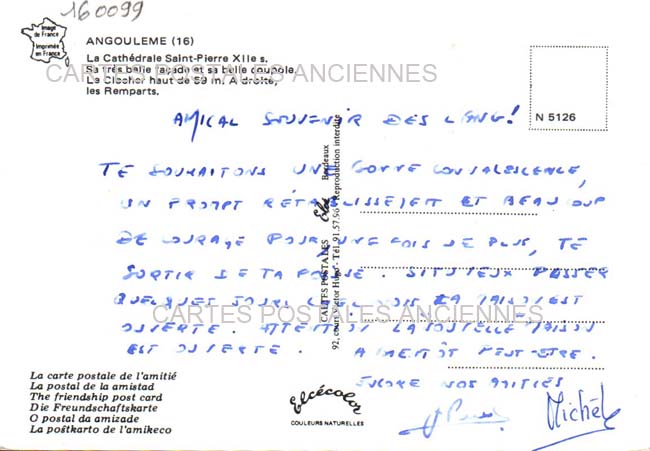 160099
Image
de France
Imprimée
en France
ANGOULEME (16)
La Cathédrale Saint-Pierre XIIe s.
Sa très belle façade et sa belle coupole.
Le Clocher haut de 59 m. A droite,
les Remparts.
CARTES POSTALES ANCIENNES
N 5126
AMICAL SOUVENIR DES
TE SOUHAITONS UNE BONNE CONVALESCENCE,
UN PROMPT RÉTABLISSEMENT ET BEAUCOUP
DE COURAGE POUR UNE FOIS DE PLUS, TE
SORTIR DE TA . SI TU VEUX PASSER
QUELQUES JOURS LA MAISON EST
OUVERTE. ATTENTION LA NOUVELLE MAISON
EST OUVERTE. A BIENTÔT PEUT-ETRE.
ENCORE NOS AMITIÉS
Michèle
CARTES POSTALES ANCIENNES
CARTES POSTALES Elcé Bordeaux
92, cours Victor Hugo - Tél. 91.57.96 - Reproduction interdite
La carte postale de l'amitié
La postal de la amistad
The friendship post card
Die Freundschaftskarte
O postal da amizade
La poŝtkarto de l'amikeco
Elcécolor
COULEURS NATURELLES